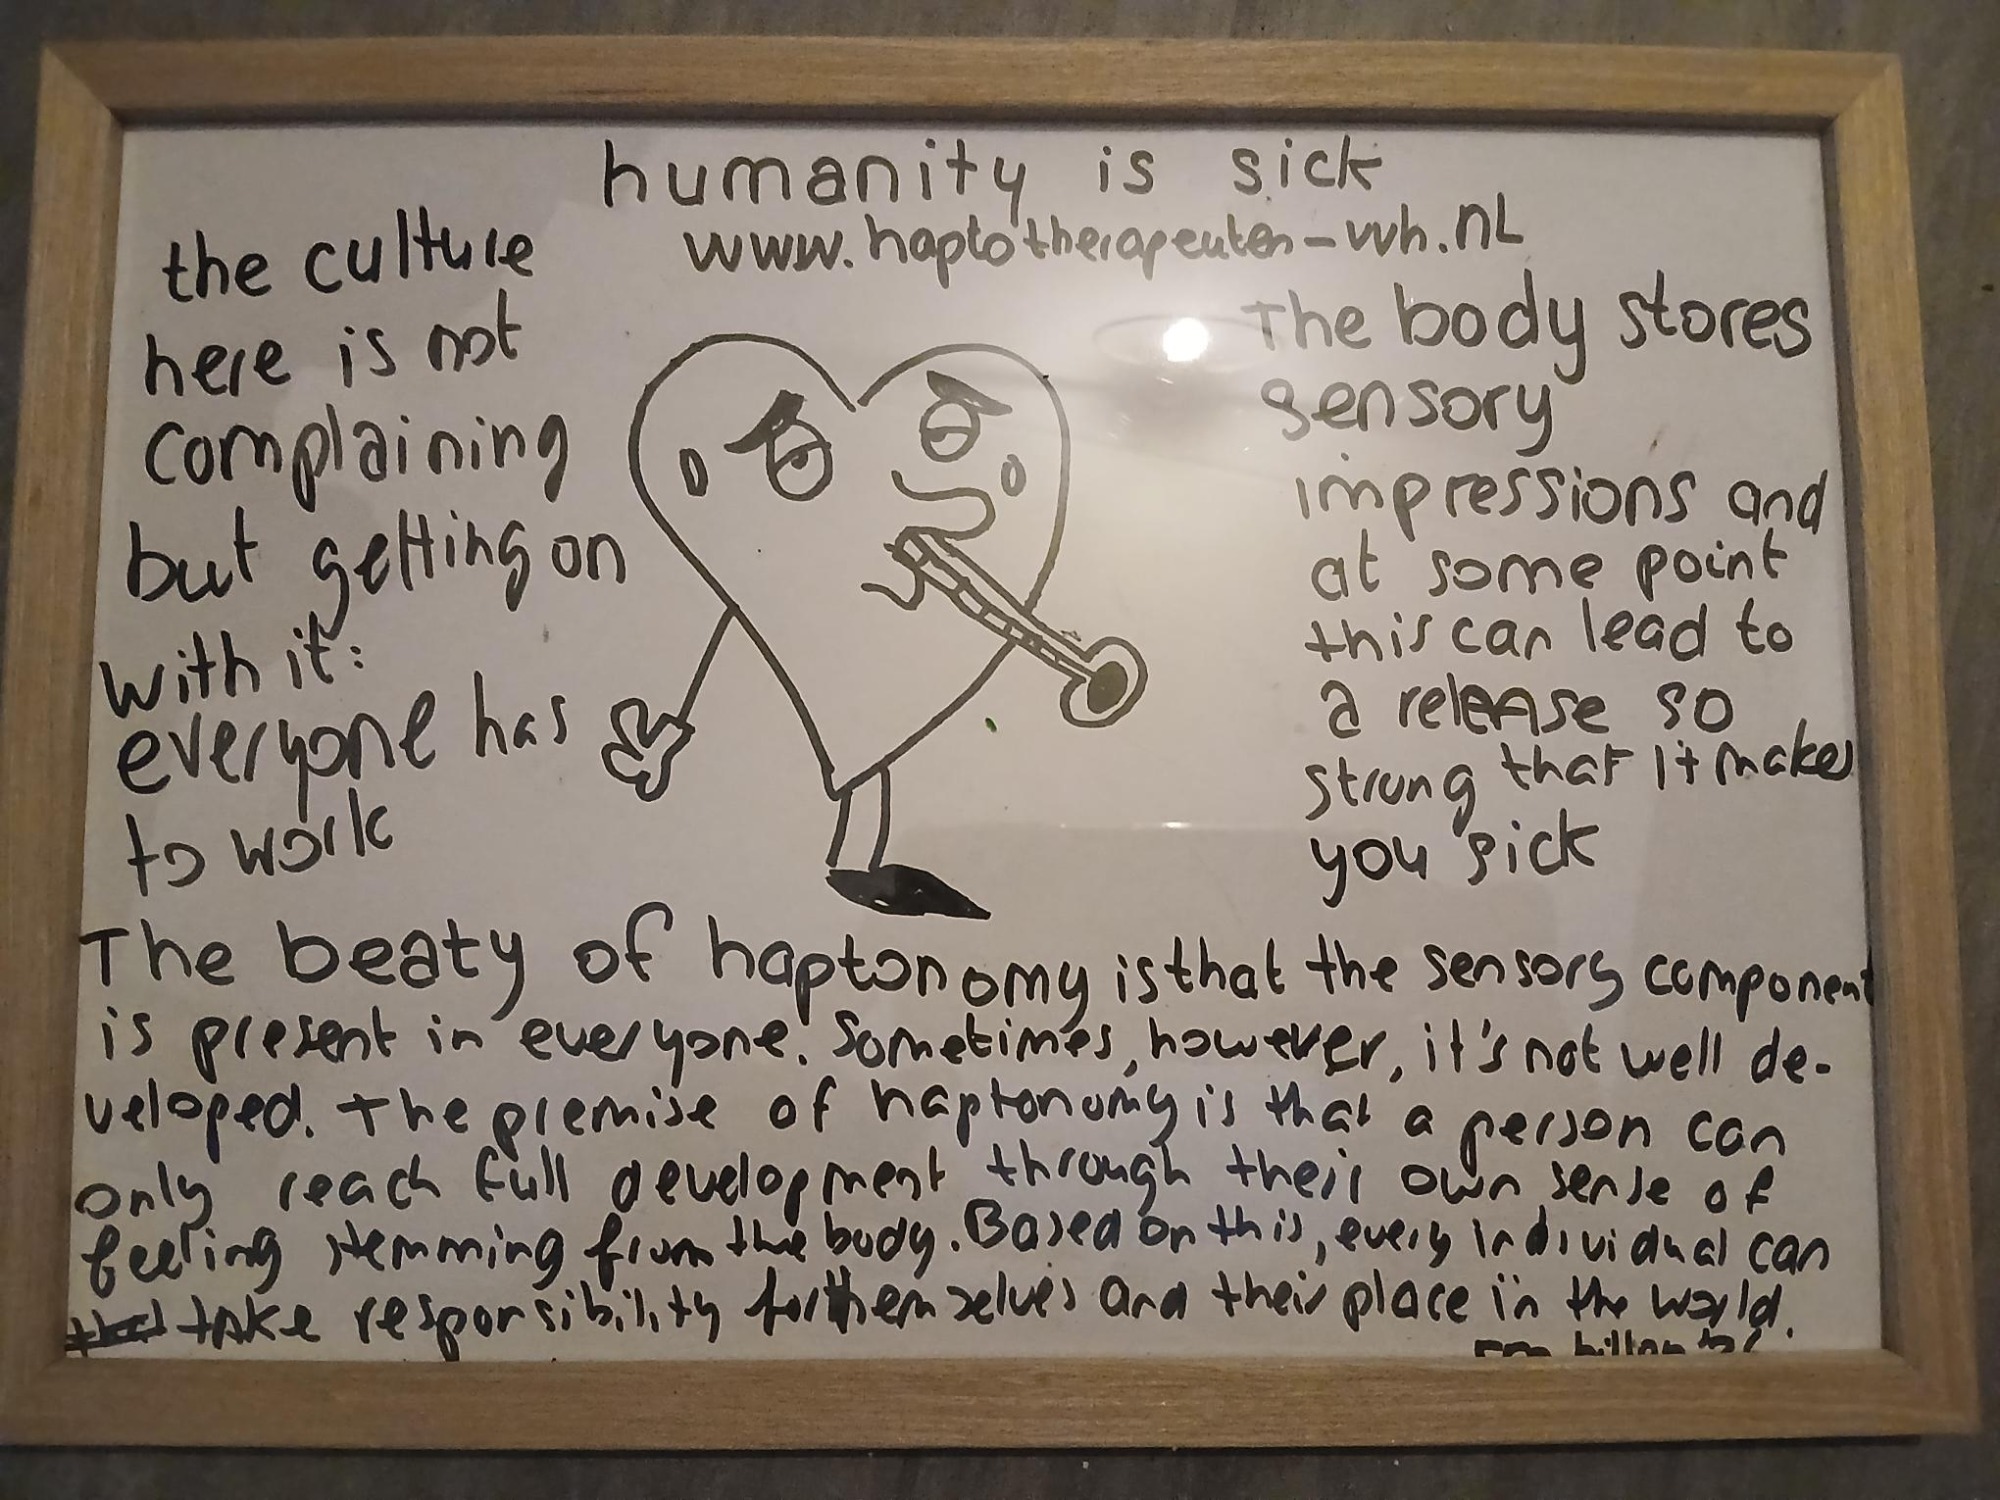 humanity is sick
www.haptotherapeuten-vvh.nL
the culture
here is not
complaining
but getting on
with it:
everyone has
to work
The body stores
sensory
impressions and
at some point
this can lead to
a release so
strong that it makes
you sick
The beaty of haptonomy is that the sensory component
is present in everyone. Sometimes, however, it's not well de-
veloped. the premise of haptonomy is that a person can
only reach full development through their own sense of
feeling stemming from the body. Based on this, every individual can
take responsibility for themselves and their place in the world.